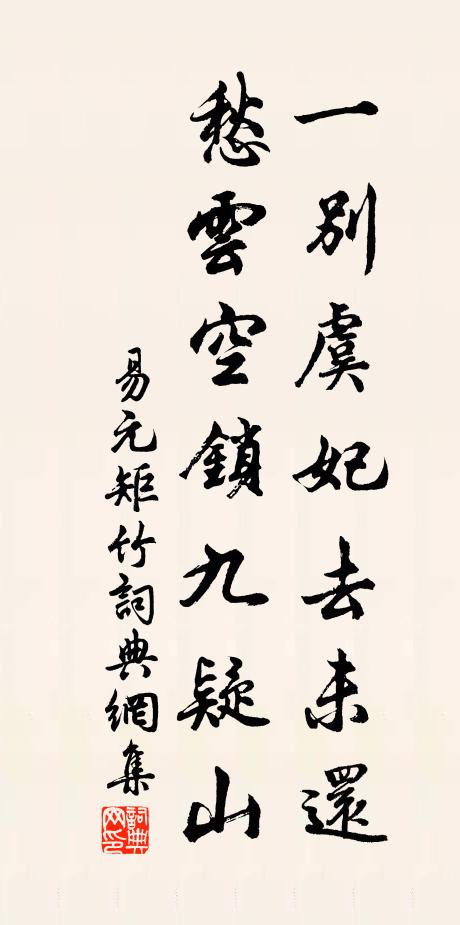 一別虞妃去未還
愁雲空鎖九疑山
易元矩竹詞典網集
詞典網印